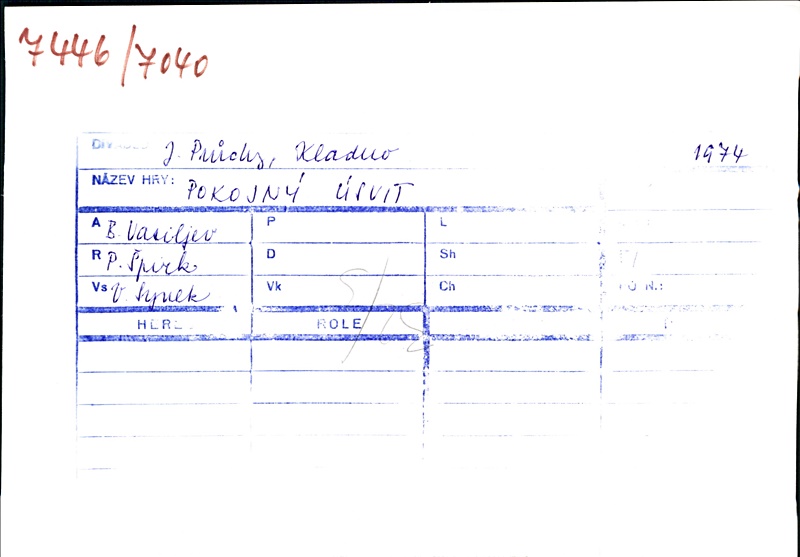 7446/7040
DIVADLO J. Průchy, Kladno 1974
NÁZEV HRY: POKOJNÝ ÚSVIT
A B. Vasiljev P L
R P. Špirk D Sh
Vs V. Synek Vk Ch
HEREC ROLE